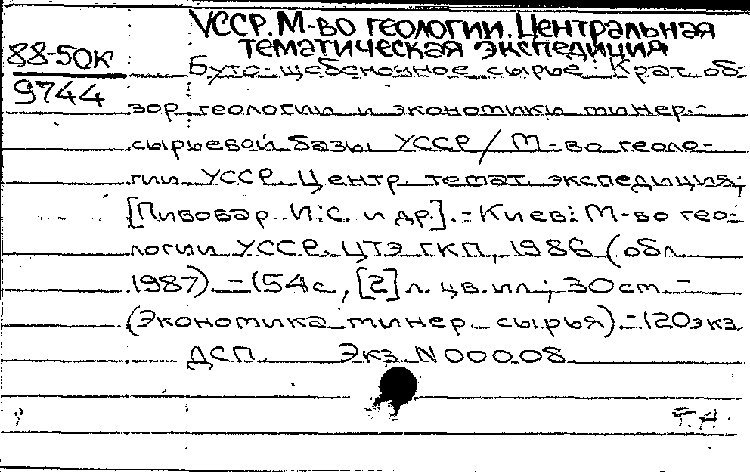 УССР. М-во геологии. Центральная
тематическая экспедиция
88-50К
9744
Буто-щебеночное сырье: Крат. об-
зор геологии и экономики минер.-
сырьевой базы УССР / М-во геоло-
гии УССР. Центр. темат. экспедиция;
[Пивовар И.С. и др]. - Киев: М-во гео-
логии УССР. ЦТЭ ГКП, 1986 (обл.
1987). - 154с., [2] л. цв. ил.; 30 см. -
(Экономика минер. сырья). - 120 экз
ДСП. Экз N 00008